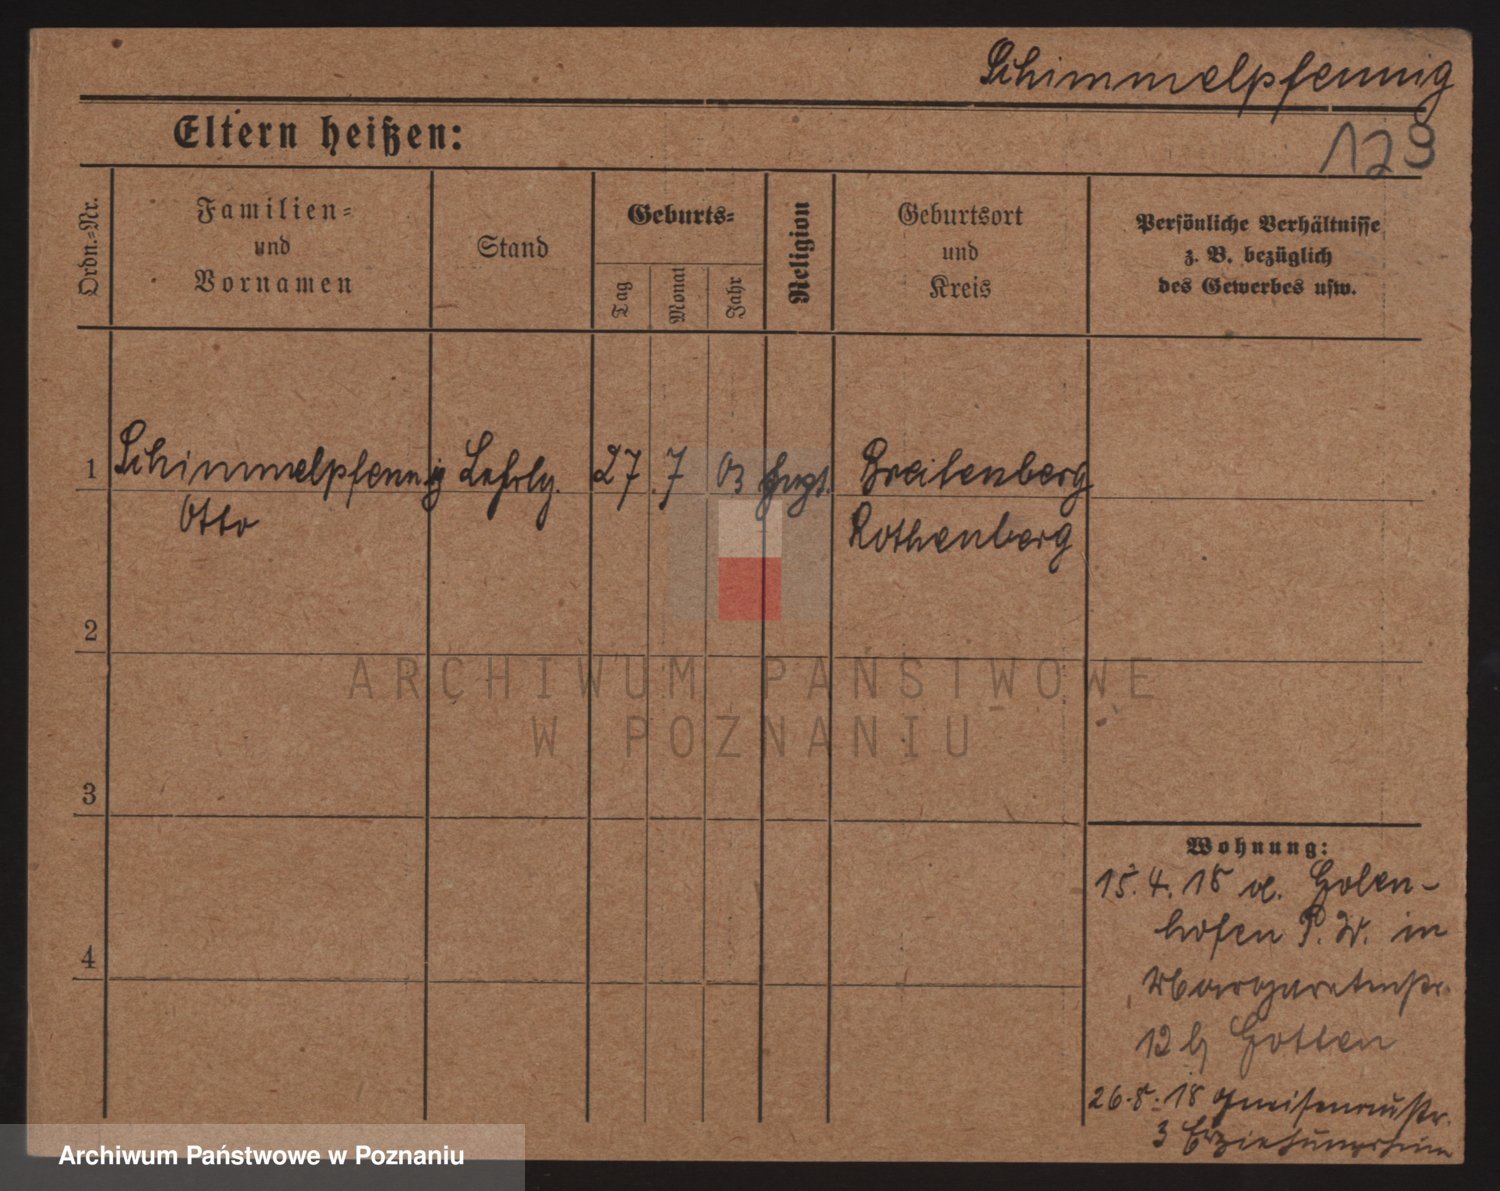 Schimmelpfennig
129
Eltern heißen:
Ordn.-Nr.
Familien-
und
Vornamen
Stand
Geburts-
Tag
Monat
Jahr
Religion
Geburtsort
und
Kreis
Persönliche Verhältnisse
z. B. bezüglich
des Gewerbes usw.
1 Schimmelpfennig Lehrlg. 27 7 03 Breitenberg
Otto Rothenberg
2
3
4
ARCHIWUM PAŃSTWOWE
W POZNANIU
Wohnung:
15.4.18 v. Golen-
hofen P. W. in
Margaretenstr.
12 b
26.8.18 Gneisenaustr.
3 Erziehungsheim
Archiwum Państwowe w Poznaniu